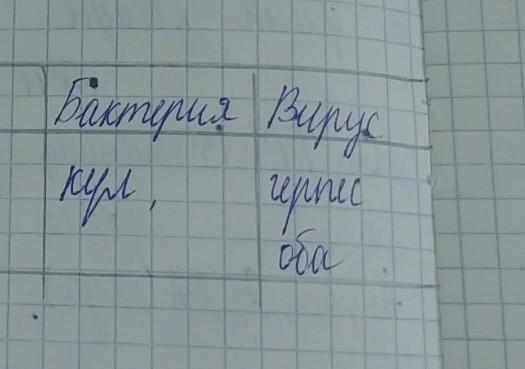 Бактерия Вирус
кул, герпес
оба